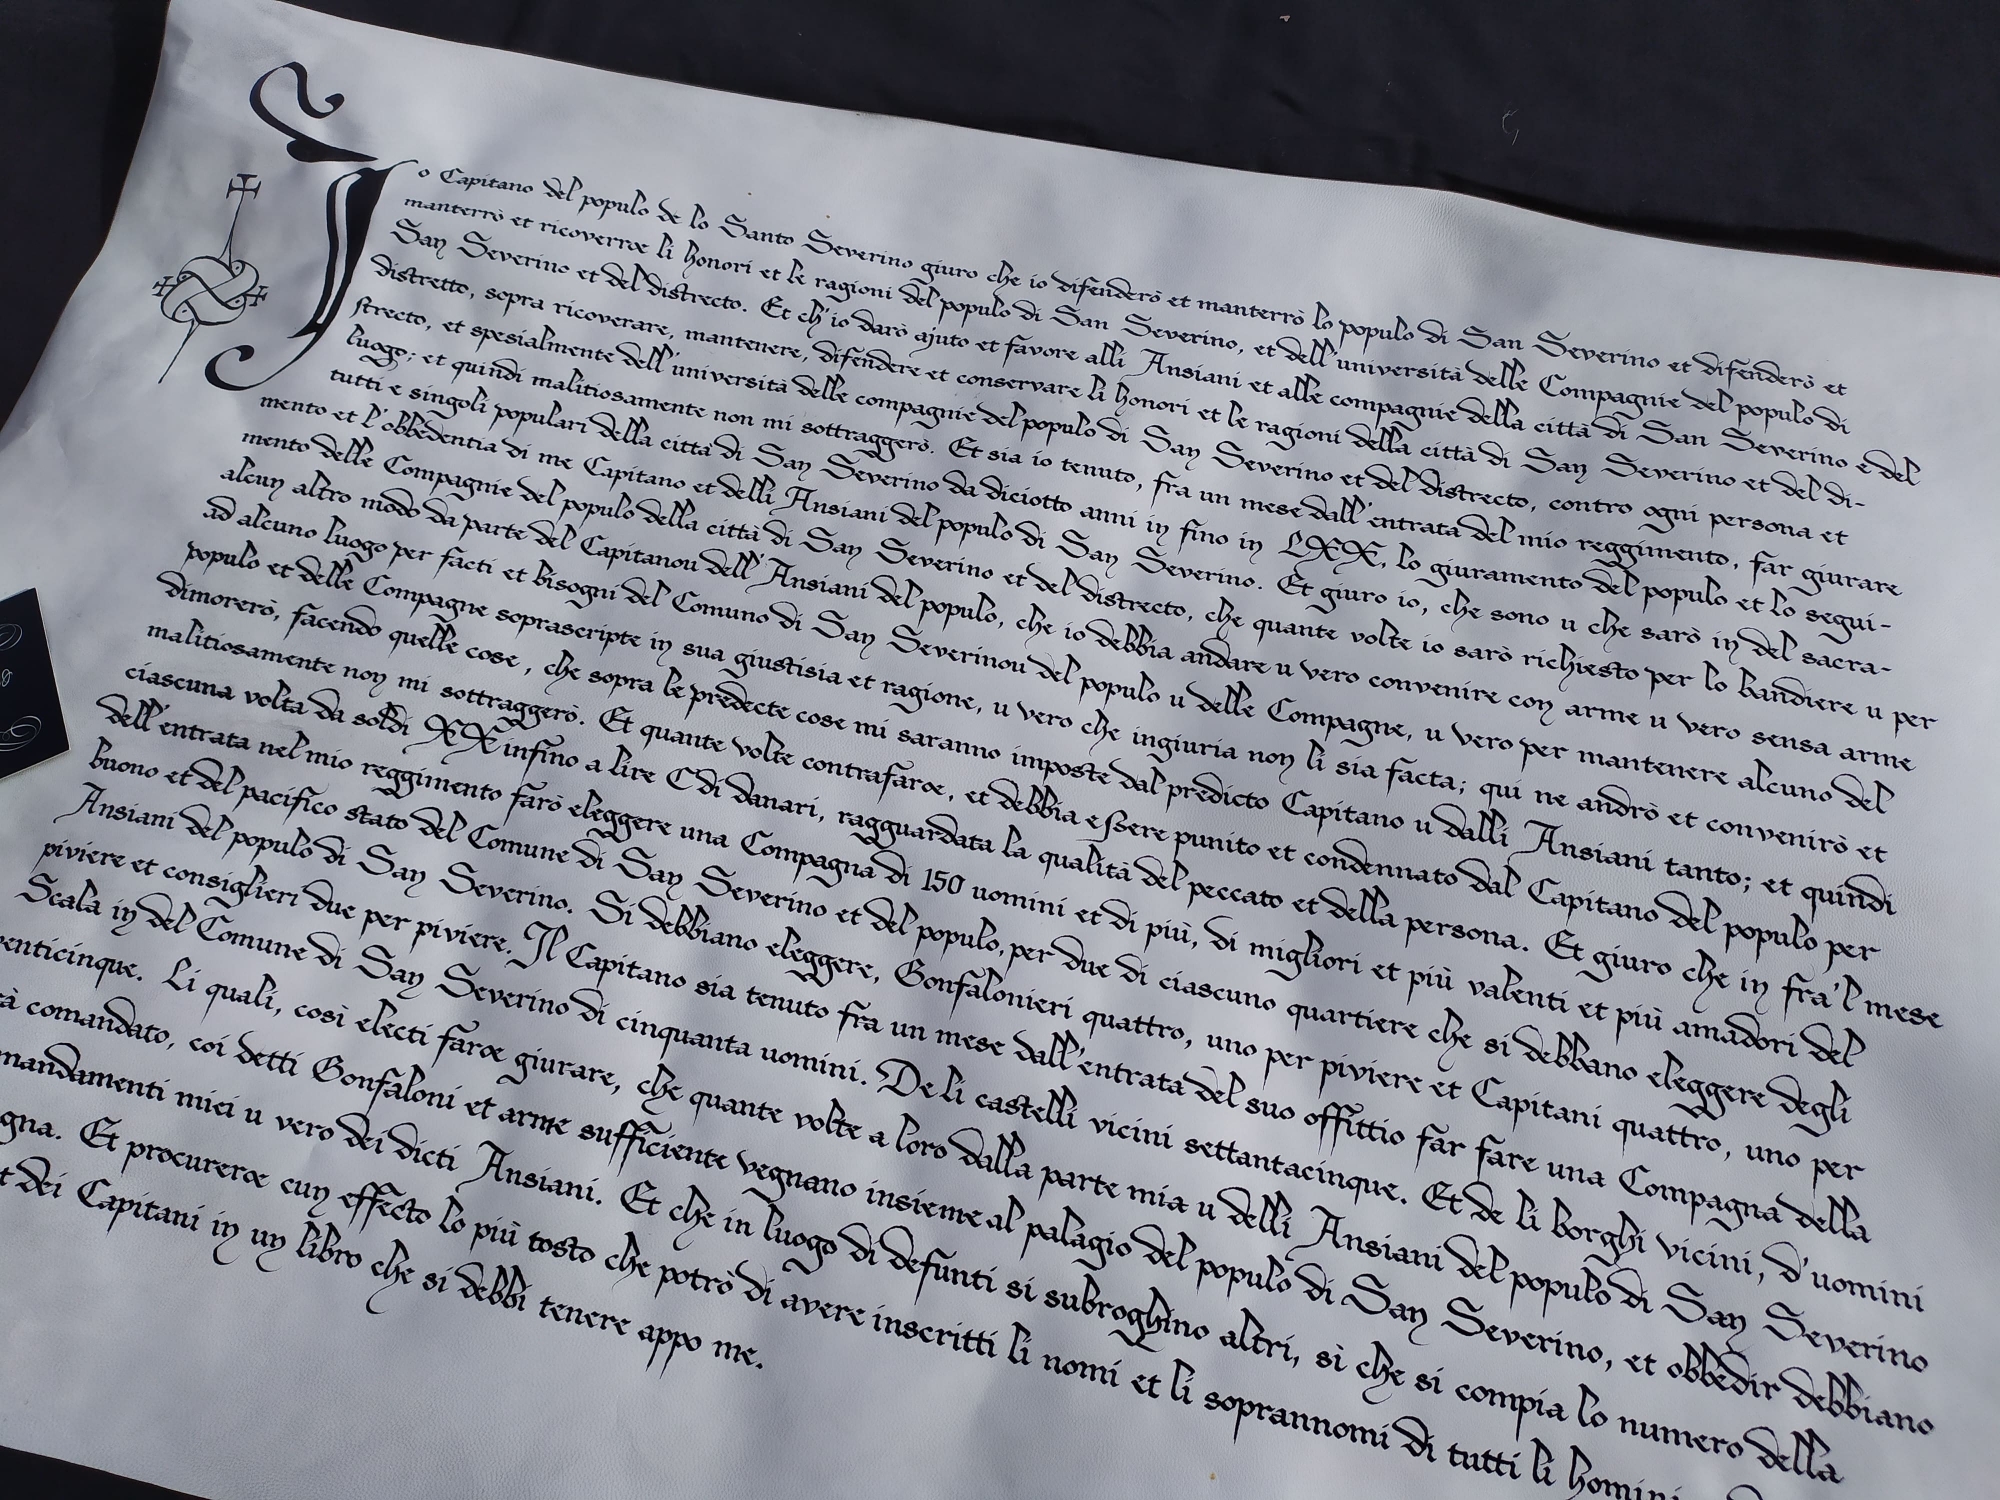 Io Capitano del populo de lo Santo Severino giuro che io difenderò et manterrò lo populo di San Severino et difenderò et
manterrò et ricoverroe li honori et le ragioni del populo di San Severino, et dell'università delle Compagnie del populo di
San Severino et del distrecto. Et ch'io darò ajuto et favore alli Ansiani et alle compagnie della città di San Severino e del
distretto, sopra ricoverare, mantenere, difendere et conservare li honori et le ragioni della città di San Severino et del di-
strecto, et spesialmente dell'università delle compagnie del populo di San Severino et del distrecto, contro ogni persona et
luogo; et quindi malitiosamente non mi sottraggerò. Et sia io tenuto, fra un mese dall'entrata del mio reggimento, far giurare
tutti e singoli populari della città di San Severino da diciotto anni in fino in LXX, lo giuramento del populo et lo segui-
mento et l'obbedentia di me Capitano et delli Ansiani del populo di San Severino. Et giuro io, che sono u che sarò in del sacra-
mento delle Compagnie del populo della città di San Severino et del distrecto, che quante volte io sarò richiesto per lo bandiere u per
alcun altro modo da parte del Capitanou dell'Ansiani del populo, che io debbia andare u vero convenire con arme u vero sensa arme
ad alcuno luogo per facti et bisogni del Comuno di San Severinou del populo u delle Compagne, u vero per mantenere alcuno del
populo et delle Compagne soprascripte in sua giustisia et ragione, u vero che ingiuria non li sia facta; qui ne andrò et convenirò et
dimorerò, facendo quelle cose, che sopra le predecte cose mi saranno imposte dal predicto Capitano u dalli Ansiani tanto; et quindi
malitiosamente non mi sottraggerò. Et quante volte contrafaroe, et debbia essere punito et condennato dal Capitano del populo per
ciascuna volta da soldi XX infino a lire C di danari, ragguardata la qualità del peccato et della persona. Et giuro che in fra'l mese
dell'entrata nel mio reggimento farò eleggere una Compagna di 150 uomini et di più, di migliori et più valenti et più amadori del
buono et del pacifico stato del Comune di San Severino et del populo, per due di ciascuno quartiere che si debbano eleggere degli
Ansiani del populo di San Severino. Si debbiano eleggere, Gonfalonieri quattro, uno per piviere et Capitani quattro, uno per
piviere et consiglieri due per piviere. Il Capitano sia tenuto fra un mese dall'entrata del suo offittio far fare una Compagna della
Scala in del Comune di San Severino di cinquanta uomini. De li castelli vicini settantacinque. Et de li borghi vicini, d'uomini
venticinque. Li quali, così electi faroe giurare, che quante volte a loro dalla parte mia u delli Ansiani del populo di San Severino
rà comandato, coi detti Gonfaloni et arme sufficiente vegnano insieme al palagio del populo di San Severino, et obbedir debbiano
mandamenti miei u vero dei dicti Ansiani. Et che in luogo di defunti si subroghino altri, sì che si compia lo numero della
gna. Et procureroe cun effecto lo più tosto che potrò di avere inscritti li nomi et li soprannomi di tutti li homini
t dei Capitani in un libro che si debbi tenere appo me.